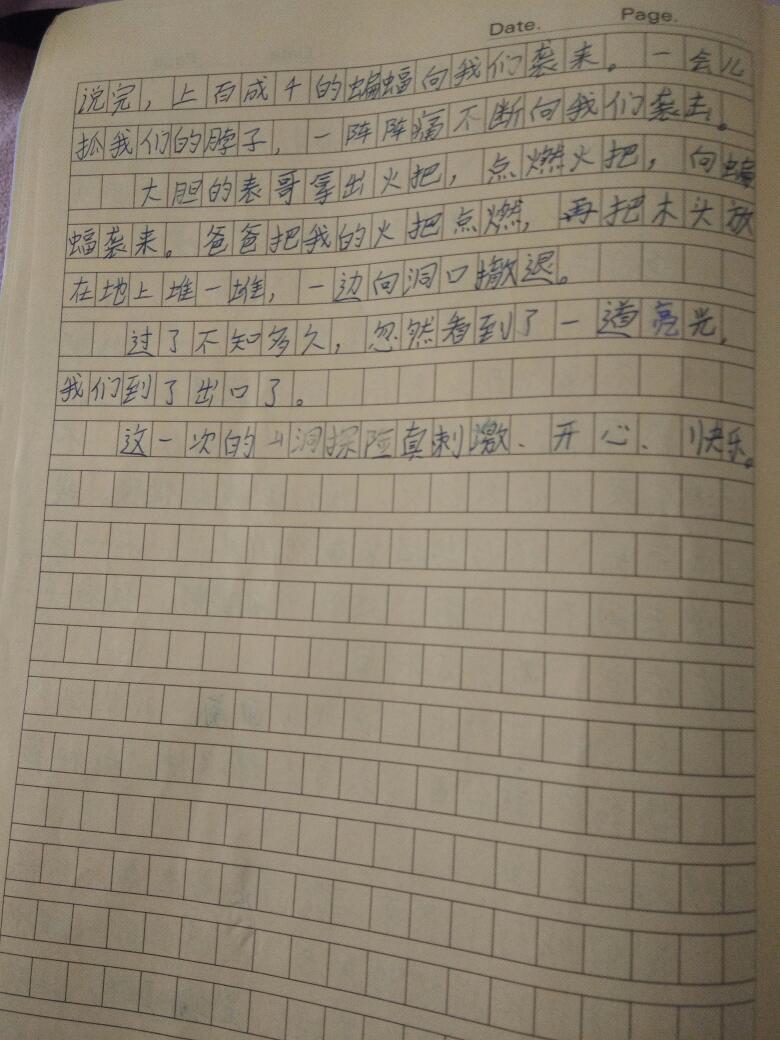 Date. Page.
说完，上百成千的蝙蝠向我们袭来。一会儿
抓我们的脖子，一阵阵痛不断向我们袭击。
大胆的表哥拿出火把，点燃火把，向蝙
蝠袭来。爸爸把我的火把点燃，再把木头放
在地上堆一堆，一边向洞口撤退。
过了不知多久，忽然看到了一道亮光，
我们到了出口了。
这一次的山洞探险真刺激、开心、快乐。